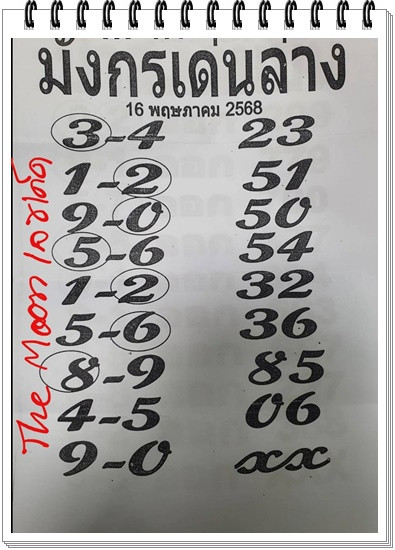 มังกรเด่นล่าง
16 พฤษภาคม 2568
3-4 23
1-2 51
9-0 50
5-6 54
1-2 32
5-6 36
8-9 85
4-5 06
9-0 xx
The Moon เลขเด็ด